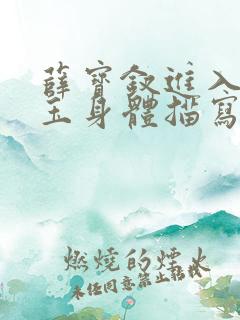 薛寶釵進入
玉身體描寫
燃燒的煙火
未經同意禁止轉載